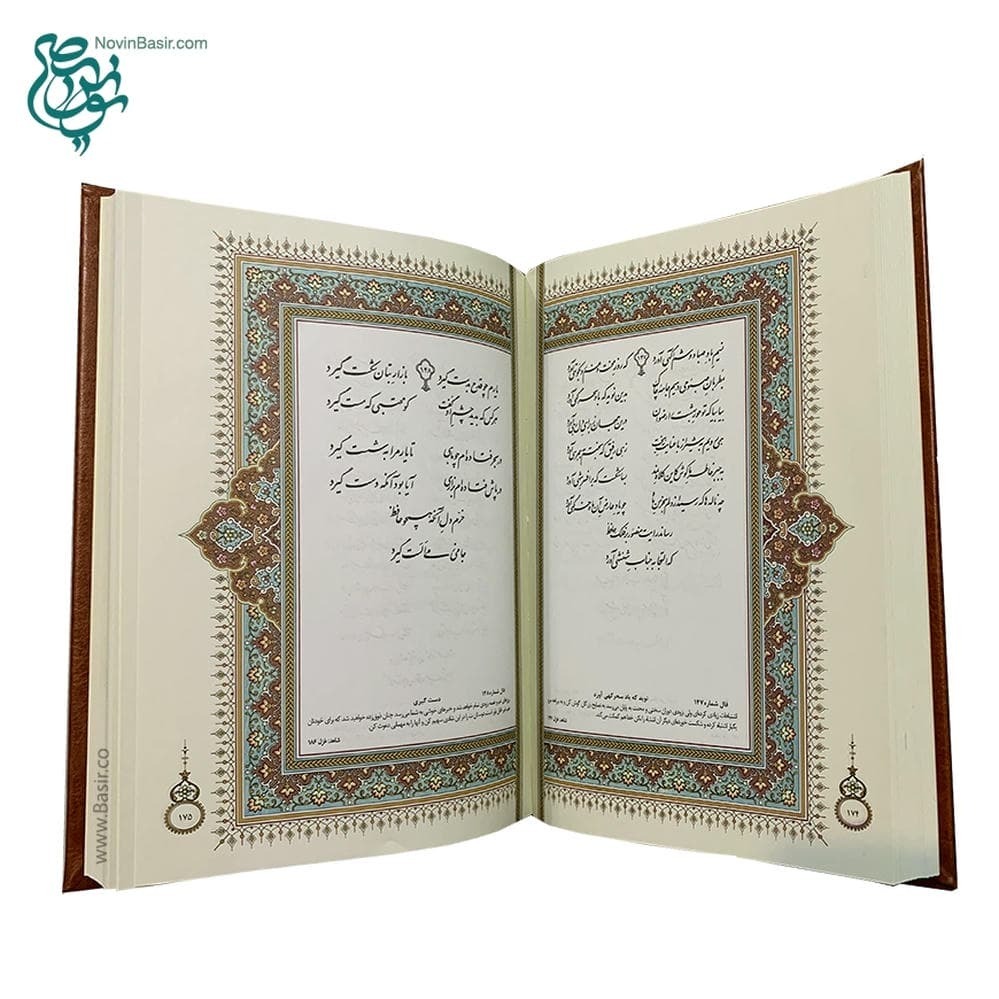 NovinBasir.com
نسیم باد صبا دوشم آگهی آورد که روز محنت و غم رو به کوتهی آورد
بمطربان صبوحی دهیم جامه چاک بدین نوید که باد سحرگهی آورد
بیا بیا که تو حور بهشت را رضوان درین جهان ز برای دل رهی آورد
همی رویم بشیراز با عنایت بخت زهی رفیق که بختم به همرهی آورد
خاطر ما کوش کاین کلاه نمد بسا شکست که بر افسر شهی آورد
چه ناله‌ها که رسید از دلم به خرمن ماه چو یاد عارض آن ماه خرگهی آورد
رساند رایت منصور بر فلک حافظ
که التجا به جناب شهنشهی آورد
فال شماره ۱۴۷ نوید که باد سحرگهی آورد
۱۷۴
۱۴۸
یارم چو قدح بدست گیرد بازار بتان شکست گیرد
هر کس که بدید چشم او گفت کو محتسبی که مست گیرد
در بحر فتاده‌ام چو ماهی تا یار مرا به شست گیرد
در پاش فتاده‌ام بزاری آیا بود آنکه دست گیرد
خرم دل آنکه همچو حافظ
جامی ز می الست گیرد
فال شماره ۱۴۸ دست گیری
شاهد: غزل ۱۸۶
۱۷۵
www.Basir.co